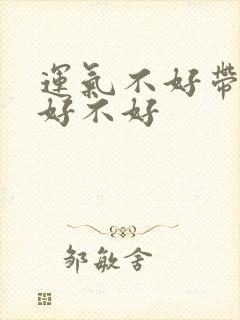 運氣不好帶
好不好
邹敏舍